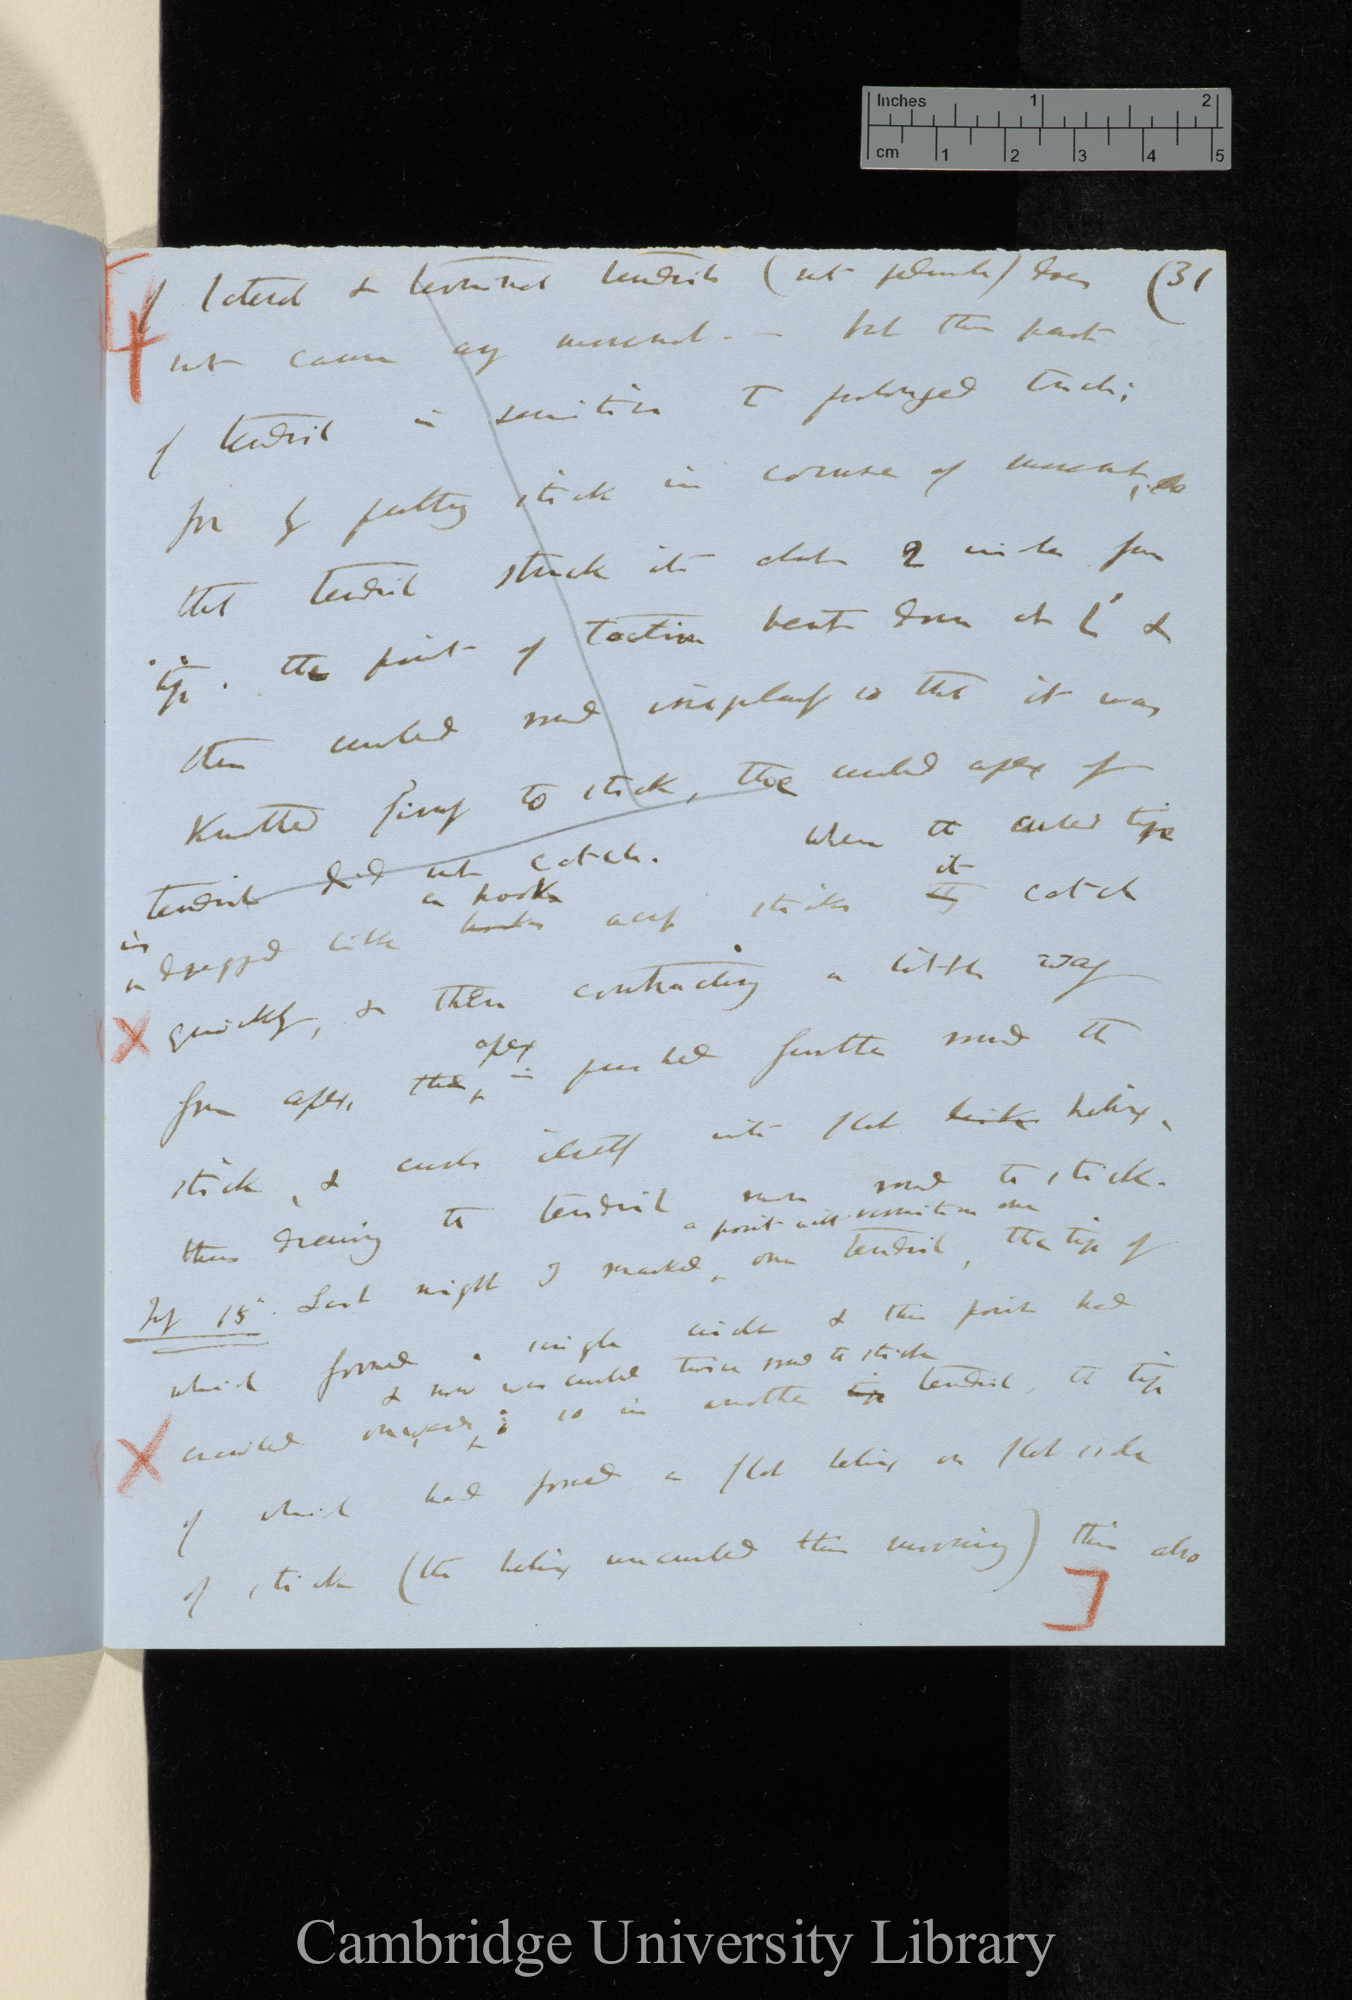 Inches 1 2
cm 1 2 3 4 5
(31
of lateral & terminal tendrils (not peduncle) does
not cause any movement. — but this part
of tendril is sensitive to prolonged touch;
for by putting stick in course of movement, so
that tendril struck it about 2 inches from
tip. the point of taction bent down at L &
then curled round so that it was
Knotted firmly to stick, the curled apex of
tendril did not catch. When the curled tip
is dragged like a hook over sticks it catch
quickly, & then contracting a little way
from apex, the apex is pushed further round the
stick, & curls itself into flat helix,
thus drawing the tendril more round the stick.
15. Last night I marked, a point with vermilion on
one tendril, the tip of
which formed a single circle & this point had
& now was curled twice round the stick
crawled onwards; so in another tip tendril, the tip
of which had formed a flat helix on flat side
of stick (the helix uncurled this morning) this also
Cambridge University Library